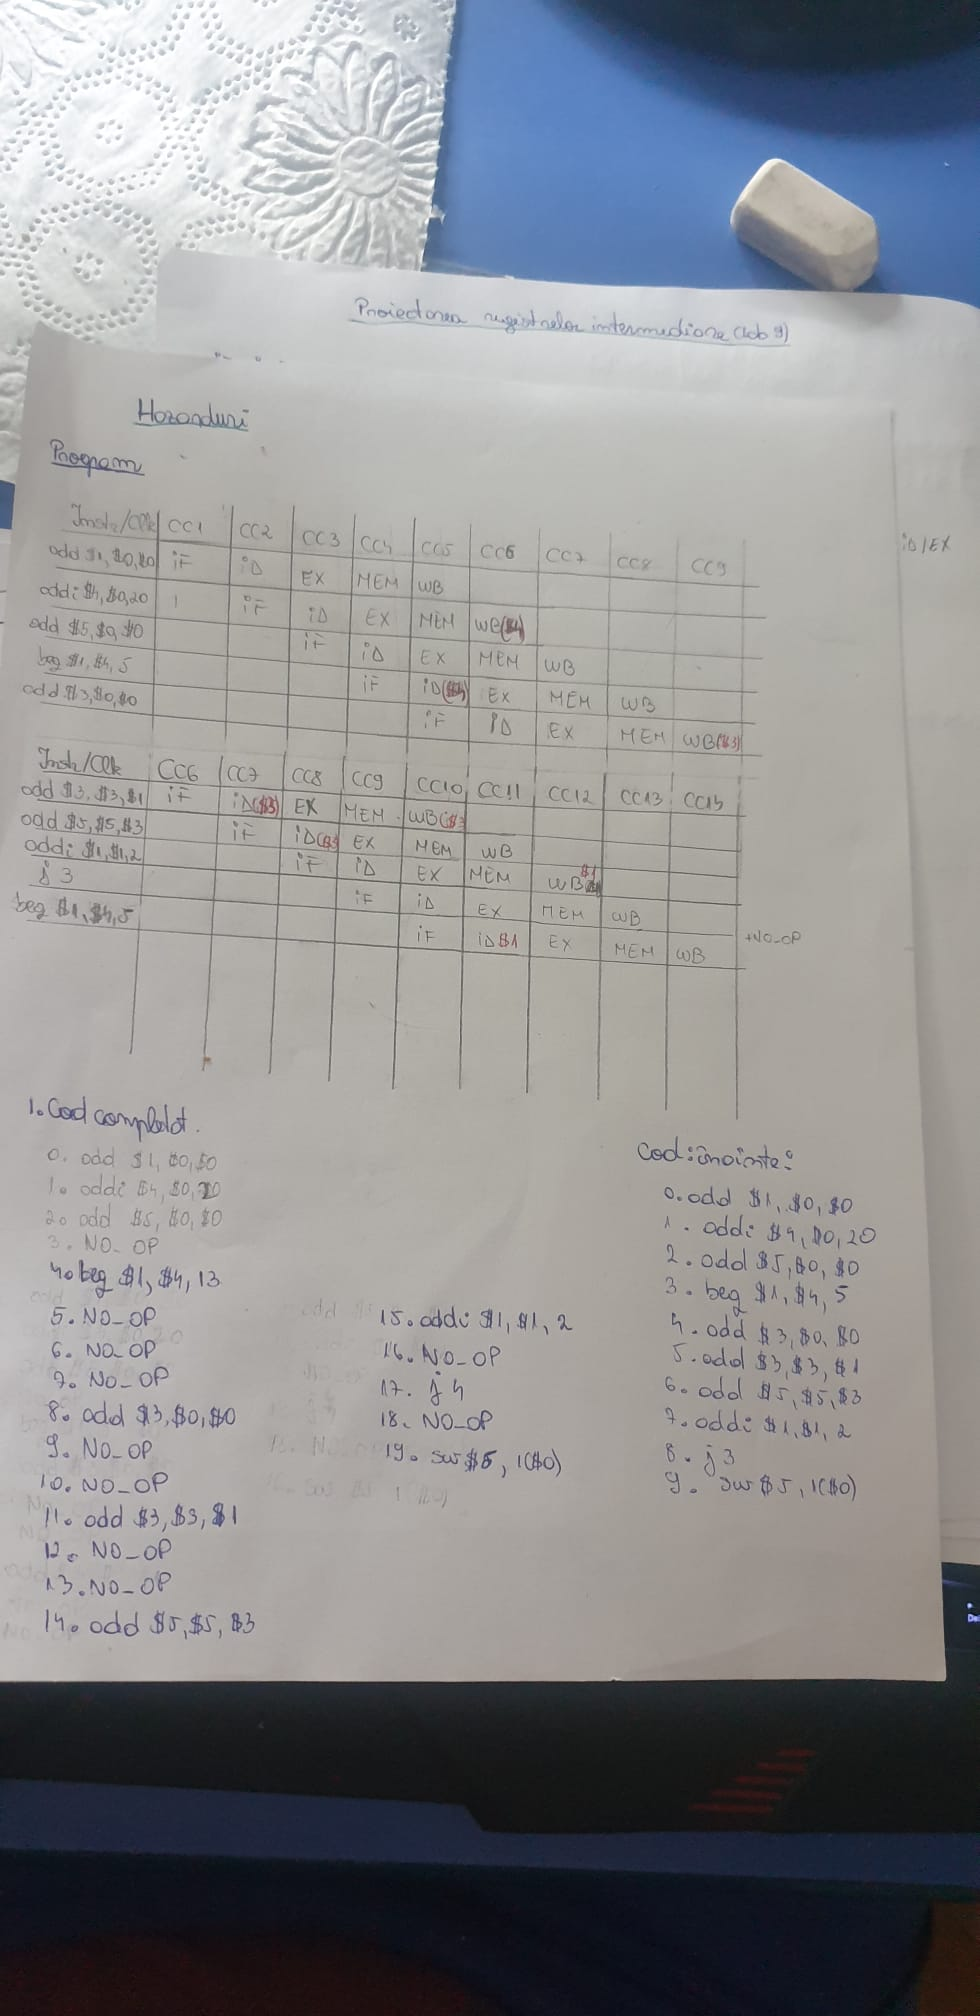 Proiectarea registrelor intermediare (lab 9)
Hazarduri
Program
ID/EX
Instr/Clk CC1 CC2 CC3 CC4 CC5 CC6 CC7 CC8 CC9
add $1, $0, $0 IF ID EX MEM WB
addi $4, $0, 20 IF ID EX MEM WB($4)
add $5, $0, $0 IF ID EX MEM WB
beq $1, $4, 5 IF ID($4) EX MEM WB
add $3, $0, $0 IF ID EX MEM WB($3)
Instr/Clk CC6 CC7 CC8 CC9 CC10 CC11 CC12 CC13 CC15
add $3, $3, $1 IF ID($3) EX MEM WB($3
add $5, $5, $3 IF ID($3 EX MEM WB
addi $1, $1, 2 IF ID EX MEM WB $1
j 3 IF ID EX MEM WB
beq $1, $4, 5 IF ID $1 EX MEM WB
+NO_OP
1. Cod completat.
0. add $1, $0, $0
1. addi $4, $0, 20
2. add $5, $0, $0
3. NO_OP
4. beq $1, $4, 13
5. NO_OP
6. NO_OP
7. NO_OP
8. add $3, $0, $0
9. NO_OP
10. NO_OP
11. add $3, $3, $1
12. NO_OP
13. NO_OP
14. add $5, $5, $3
15. addi $1, $1, 2
16. NO_OP
17. j 4
18. NO_OP
19. sw $5, 1($0)
Cod înainte:
0. add $1, $0, $0
1. addi $4, $0, 20
2. add $5, $0, $0
3. beq $1, $4, 5
4. add $3, $0, $0
5. add $3, $3, $1
6. add $5, $5, $3
7. addi $1, $1, 2
8. j 3
9. sw $5, 1($0)